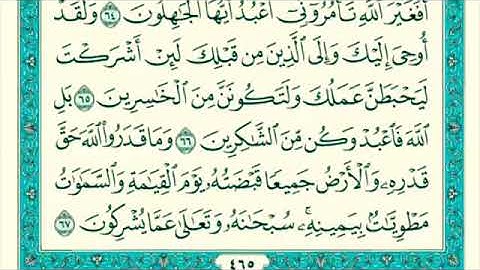 أَفَغَيْرَ ٱللَّهِ تَأْمُرُوٓنِّىٓ أَعْبُدُ أَيُّهَا ٱلْجَٰهِلُونَ ٦٤ وَلَقَدْ
أُوحِىَ إِلَيْكَ وَإِلَى ٱلَّذِينَ مِن قَبْلِكَ لَئِنْ أَشْرَكْتَ
لَيَحْبَطَنَّ عَمَلُكَ وَلَتَكُونَنَّ مِنَ ٱلْخَٰسِرِينَ ٦٥ بَلِ
ٱللَّهَ فَٱعْبُدْ وَكُن مِّنَ ٱلشَّٰكِرِينَ ٦٦ وَمَا قَدَرُوا۟ ٱللَّهَ حَقَّ
قَدْرِهِۦ وَٱلْأَرْضُ جَمِيعًا قَبْضَتُهُۥ يَوْمَ ٱلْقِيَٰمَةِ وَٱلسَّمَٰوَٰتُ
مَطْوِيَّٰتٌۢ بِيَمِينِهِۦ ۚ سُبْحَٰنَهُۥ وَتَعَٰلَىٰ عَمَّا يُشْرِكُونَ ٦٧
٤٦٥